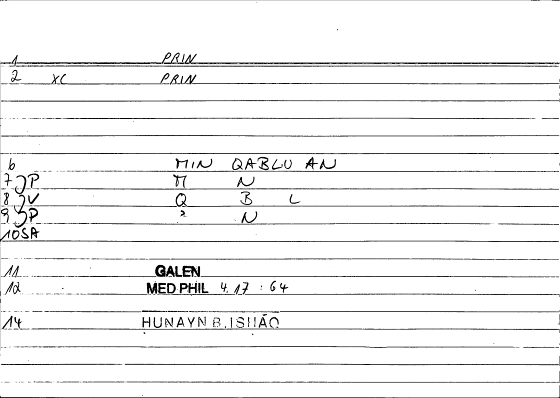 1 PRIN
2 XC PRIN
6 MIN QABLU AN
7 P M N
8 V Q B L
9 P ʾ N
10 SA
11 GALEN
12 MED PHIL 4.17 : 64
14 HUNAYN B. ISHAQ